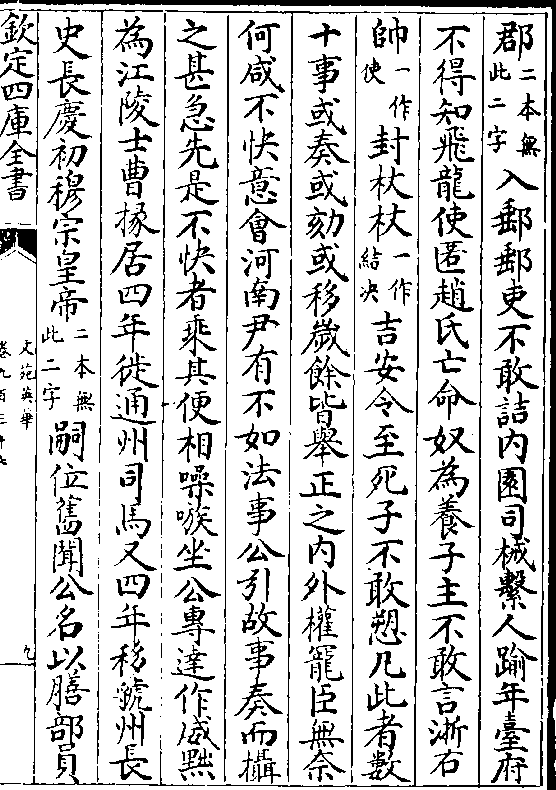 郡二本無此二字入郵郵吏不敢詰内園司械繫人踰年臺府
不得知飛龍使匿趙氏亡命奴為養子主不敢言浙右
帥一作使封杖杖一作結决吉安令至死子不敢愬凡此者數
十事或奏或劾或移歲餘皆舉正之内外權寵臣無奈
何咸不快意會河南尹有不如法事公引故事奏而攝
之甚急先是不快者乘其便相噪嗾坐公專達作威黜
為江陵士曹掾居四年徙通州司馬又四年移虢州長
史長慶初穆宗皇帝二本無此二字嗣位舊聞公名以膳部員
欽定四庫全書
文苑英華
卷九百三十七
九